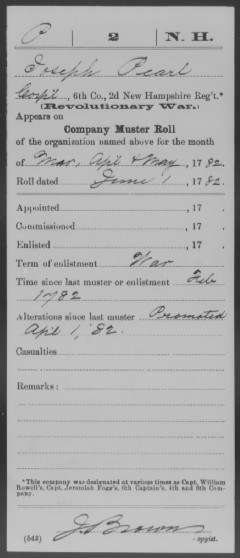 P | 2 | N. H.
Joseph Pearl
Corp'l, 6th Co., 2d New Hampshire Reg't.*
(Revolutionary War.)
Appears on
Company Muster Roll
of the organization named above for the month
of Mar, Apl & May, 1782.
Roll dated June 1, 1782.
Appointed , 17 .
Commissioned , 17 .
Enlisted , 17 .
Term of enlistment War
Time since last muster or enlistment Feb
1782
Alterations since last muster Promoted
Apl 1, '82.
Casualties
Remarks:
*This company was designated at various times as Capt. William
Rowell's, Capt. Jeremiah Fogg's, 6th Captain's, 4th and 6th Com-
pany.
J. S. Brown
(543) Copyist.